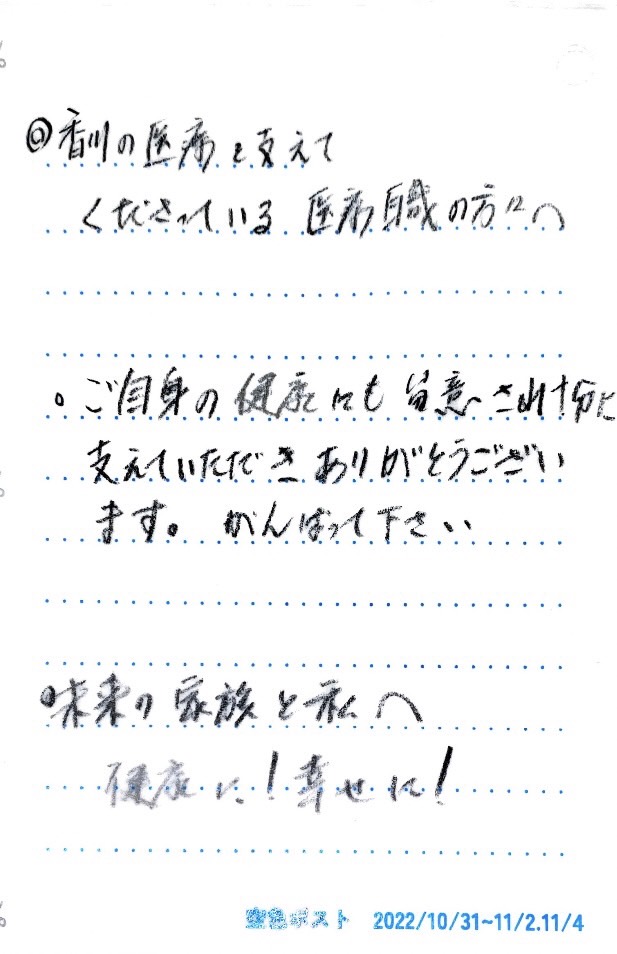 ◎香川の医療を支えて
くださっている 医療職の方々へ
。ご自身の健康にも 留意され十分に
支えていただき ありがとうござい
ます。 がんばって下さい
。未来の 家族と私へ
健康に！幸せに！
空色ポスト 2022/10/31~11/2.11/4